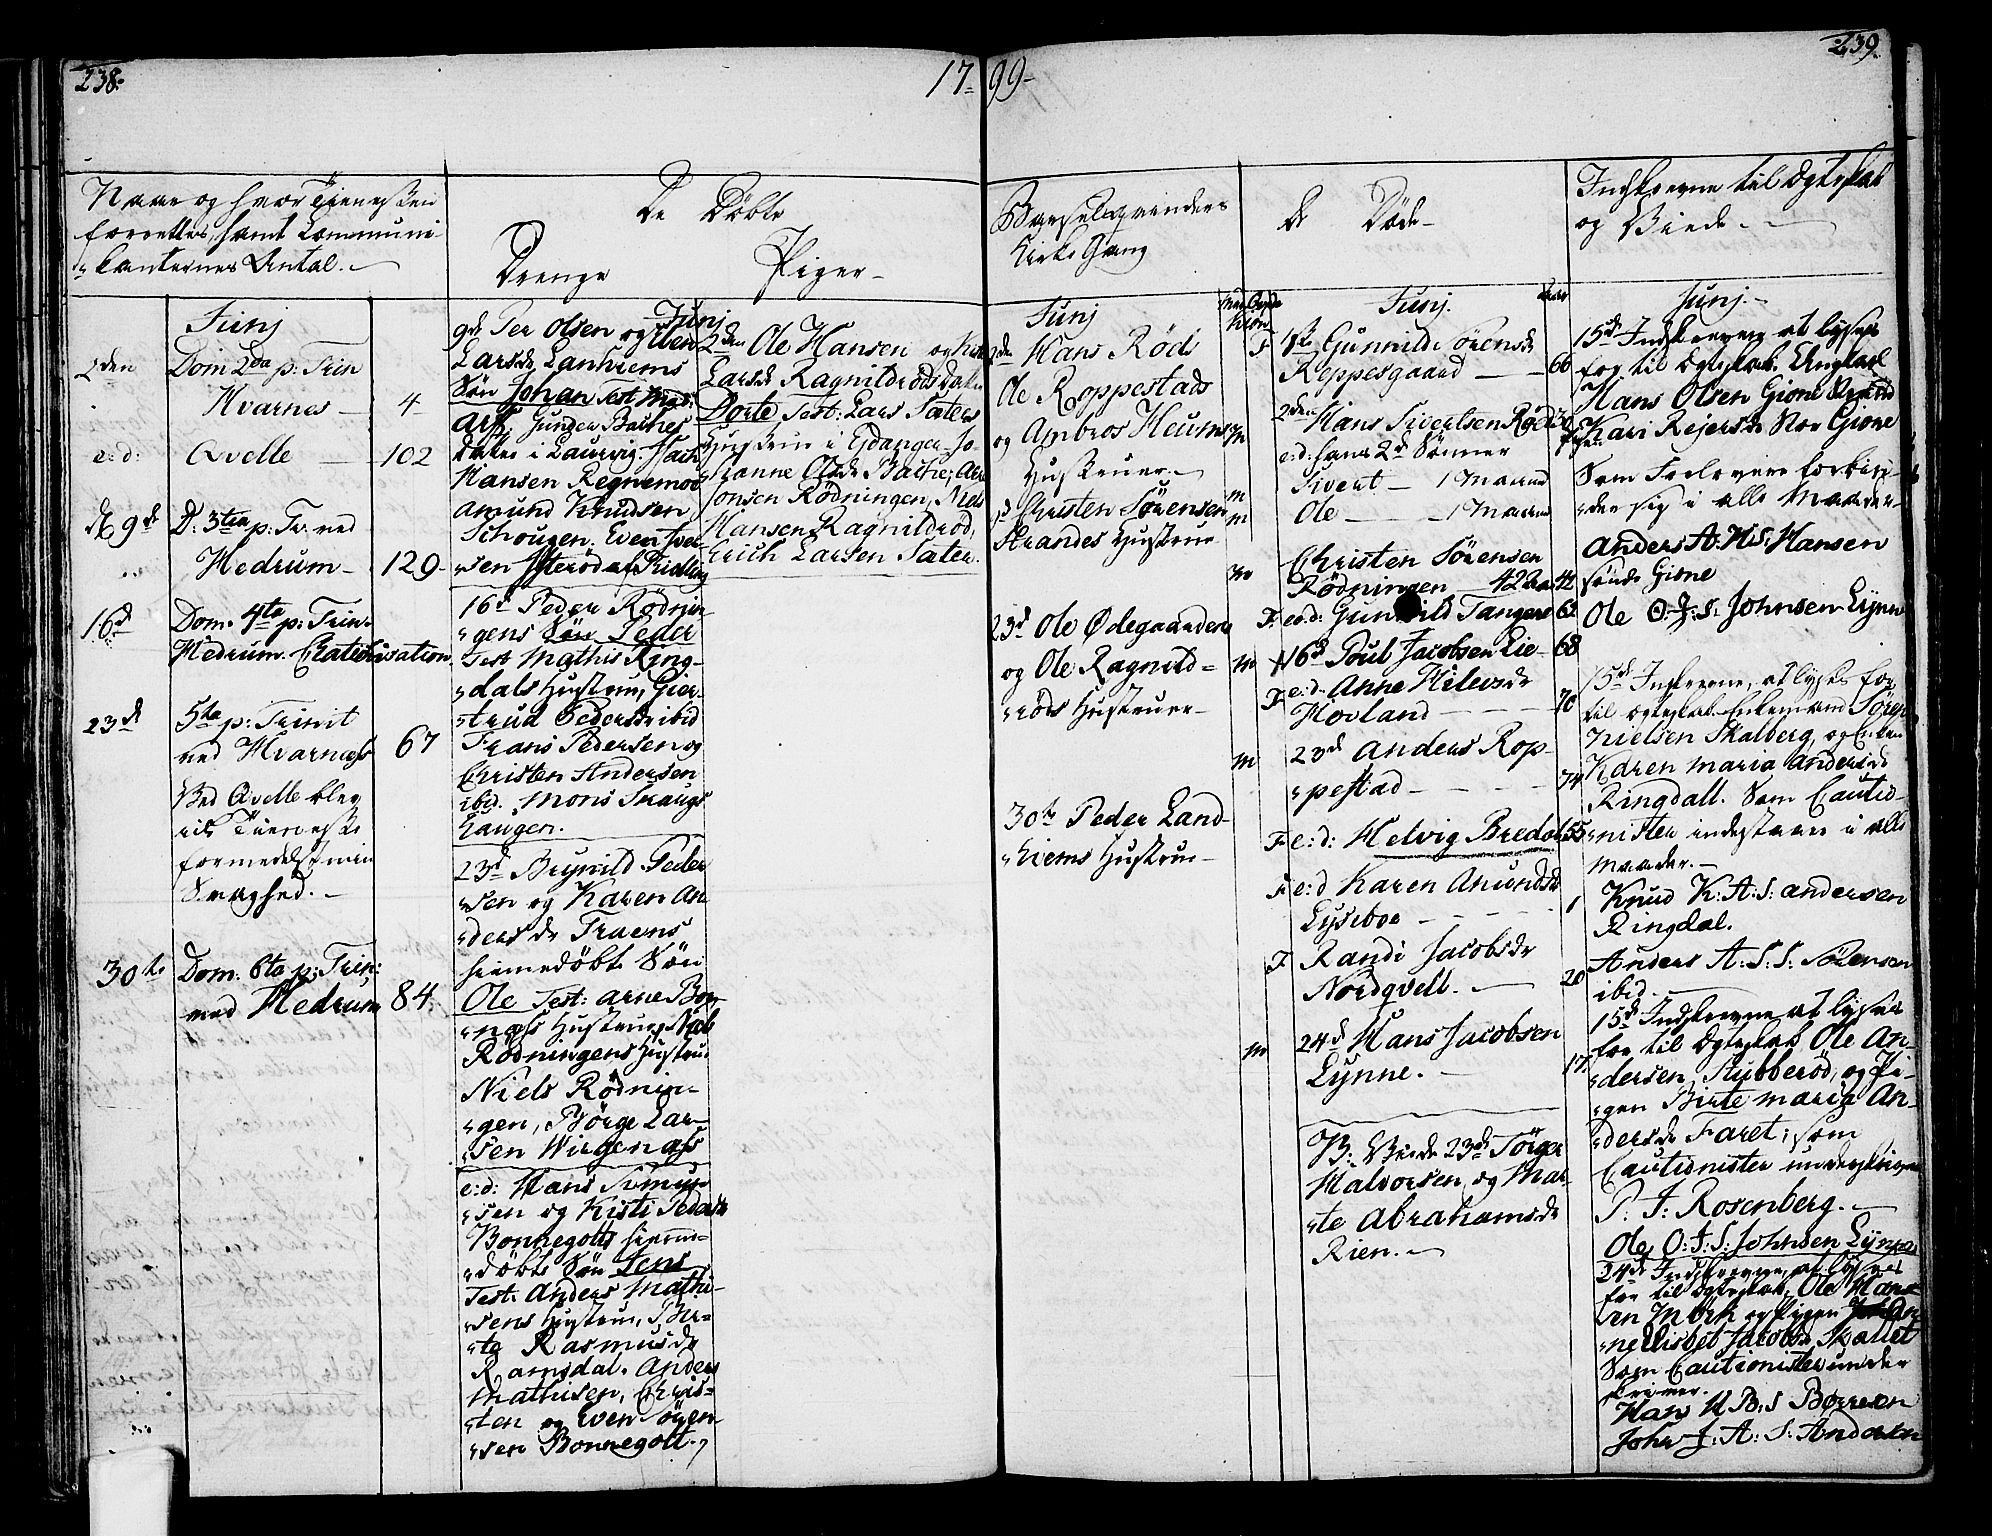 238.
17=
99-
239.
Naar og hvor Tienesten
forrettes, samt Communi-
"kanternes Antal.
De Döbte
Drenge
Piger-
Barselqvinders
Kirke Gang
De Döde-
Indskrevne til Ægteskab
og Viede.
Junj
2den Dom 2da p: Trin
Hvarnes - 4
e:d: Qvelle - 102
d. 9d D: 3tia p: Tr. ved
Hedrum - 129-
16d Dom. 4ta p: Trin.
Hedrum. Catechisation
23d 5ta p: Trinit
ved Hvarnæss 67
Ved Qvelle blev
Tieneste
formedelst min
Svaghed.
30te Dom. 6ta p: Trin:
ved Hedrum 84.
Junj
9d Per Olsen og
Larsdr Lanhiems
Sön Johan Test
Gunder Bache
i Laurvig.
Hansen Regnemoe
Amund Knudsen
Schougen. Even
16d Peder Rödnin
"gens Sön Peder
Test Mathis Ring-
"dals Hustrue, Gier-
"trud Pedersdr ibid
Frans Pedersen og
Christen Andersen
ibid. Mons Skougs
Haugen.
23d Brynild Peder
"sen og Karen An
"ders dr Traens
hiemedöbte Sön
Ole Test: Arne Bon
"næss Hustrue, Niels
Rödningens Hustrue
Niels Rödnin-
"gen, Börge Lar-
"sen Wirgenæss
e:d: Hans Simen
"sen og Kisti Pedersdr
Bonnegotts hieme-
"döbte Sön Jens
Test: Anders Mathi-
"sens Hustrue, Bir-
"te Rasmusdr
Ramsdal. Anders
Mathisen, Chris-
"ten og Even Sören
"sen Bonnegott.
2den Ole Hansen og
Larsdr Ragnildröds
Dorte Test: Lars Sæters
Hustrue i Eidanger, Jo-
hanne Olsdr Bache,
Jonsen Rödningen, Niels
Hansen Ragnildröd,
Erich Larsen Sæter.
Junj
2den Hans Röds
Ole Roppestads
og Ambros Heums
Hustruer.
Christen Sörensen
Strandes Hustrue
23d Ole Ödegaardens
og Ole Ragnild=
"röds Hustruer-
30te Peder Land-
"hiems Hustrue-
Junj.
F 1ste Gunnild Sörensdr
Reppesgaard - 66
M 2den Hans Sivertsen Röd
e:d: hans 2de Sönner
M Sivert - 1 Maaned
M Ole - 1 Maaned
M Christen Sörensen
Rödningen 42 44
F. e.d: Gunnild Tangene 62
M 16d Poul Jacobsen Lie- 68
F e:d. Anne Nilensdr
Hovland - 70
M 23d Anders Rop-
"pestad - 74
F e:d: Helvig Bredal 55
F e:d Karen Amundsdr
Lyseboe - 1
F Randi Jacobsdr
Nordqvell. - 20
M 24d Hans Jacobsen
Lynne. - 17
NB. Viede 23de Törger
Halvorsen, og Mar-
"te Abrahamsdr
Rien.
Junj.
15d Indskrevne at lyses
for til Ægteskab, Ungkarl
Hans Olsen Gione
Kari Rejersdr Nor Gione
Som Forlovere forbin-
"der sig i alle Maader-
Anders A. H:S: Hansen
söndr Gione
Ole O. J: S: Johnsen Lynn
15d Indskrevne, at lyses for
til Ægteskab, Enkemand Sören
Nielsen Skalberg, og Enken
Karen Maria Andersdr
Ringdall. Som Cautio-
"nister indestaaer i alle
Maader.
Knud K: A: S: Andersen
Ringdal.
Anders A: S: S: Sörensen
ibid.
15d Indskrevne at lyses
for til Ægteskab, Ole An-
"dersen Stubberöd, og Pi-
"gen Birte Maria An-
"dersdr Faret; som
Cautionister underskriver
P. J: Rosenberg.
Ole O: J: S: Johnsen Lynne
24de Indskrevne, at lyses
for til Ægteskab, Ole Hans-
en Mörk og Pigen An
"ne Lisbet Jacobsdr Skallet
Som Cautionister under
skriver.
Hans H B: S Börresen
John J: A: S: Andersen